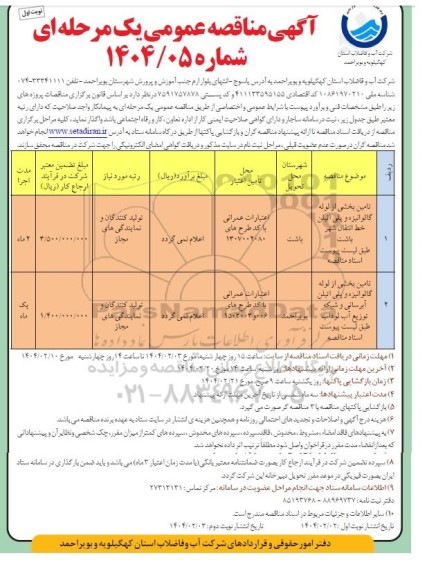 نوبت اول
آگهی مناقصه عمومی یک مرحله ای
شماره ۱۴۰۴/۰۵
شرکت آب و فاضلاب استان
کهگیلویه و بویراحمد
شرکت آب و فاضلاب استان کهگیلویه و بویراحمد به آدرس یاسوج - انتهای بلوار ارم جنب آموزش و پرورش شهرستان بویراحمد - تلفن ۳۳۳۴۱۱۱۱-۰۷۴
شناسه ملی ۱۰۸۶۱۹۷۰۲۱۰ کد اقتصادی ۴۱۱۱۳۳۵۴۵۱۵۴ و کد پستی ۷۵۹۱۷۵۷۸۷۸ در نظر دارد بر اساس قانون برگزاری مناقصات پروژه های
زیر را طبق مشخصات فنی و برآورد پیوست با شرایط عمومی و اختصاصی از طریق مناقصه عمومی یک مرحله ای به پیمانکار واجد صلاحیت که دارای رتبه
معتبر طبق جدول زیر، ثبت در سامانه ساجار و دارای گواهی صلاحیت ایمنی کار از اداره تعاون، کار و رفاه اجتماعی باشد واگذار نماید، کلیه مراحل برگزاری
مناقصه از دریافت اسناد مناقصه تا ارائه پیشنهاد مناقصه گران و بازگشایی پاکتها از طریق درگاه سامانه ستاد به آدرس www.setadiran.ir انجام خواهد
شد مناقصه گران در صورت عدم عضویت قبلی، مراحل ثبت نام در سایت مذکور و دریافت گواهی امضای الکترونیکی را جهت شرکت در مناقصه محقق سازند.
ردیف | موضوع مناقصه | شهرستان محل تحویل | محل تامین اعتبار | مبلغ برآورد (ریال) | رتبه مورد نیاز | مبلغ تضمین معتبر شرکت در فرآیند ارجاع کار (ریال) | مدت اجرا
۱ | تامین بخشی از لوله گالوانیزه و پلی اتیلن خط انتقال شهر باشت طبق لیست پیوست اسناد مناقصه | باشت | اعتبارات عمرانی با کد طرح های ۱۳۰۷۰۰۲۰۸۰ | اعلام نمی گردد | تولید کنندگان و نمایندگی های مجاز | ۳/۵۰۰/۰۰۰/۰۰۰ | ۲ ماه
۲ | تامین بخشی از لوله گالوانیزه و پلی اتیلن آبرسانی و شبکه توزیع آب لوداب طبق لیست پیوست اسناد مناقصه | بویراحمد | اعتبارات عمرانی با کد طرح های | اعلام نمی گردد | تولید کنندگان و نمایندگی های مجاز | ۱/۴۰۰/۰۰۰/۰۰۰ | یک ماه
۱) مهلت زمانی دریافت اسناد مناقصه از سایت: ساعت ۱۵ روز چهارشنبه مورخ ۱۴۰۴/۰۲/۰۳ تا ساعت ۱۴ روز چهارشنبه مورخ ۱۴۰۴/۰۲/۱۰
۲) آخرین مهلت زمانی ارائه پیشنهادها: روز شنبه ساعت ۱۴ مورخ ۱۴۰۴/۰۲/۲۰
۳) زمان بازگشایی پاکتها: روز یکشنبه ساعت ۹ صبح مورخ ۱۴۰۴/۰۲/۲۱
۴) مدت اعتبار پیشنهادها: سه ماه شمسی از تاریخ آخرین مهلت ارائه پیشنهاد
۰۲۱-۸۸۳۴۹۶۷۰-۵
۵) بازگشایی پاکتهای مناقصه با ۳ مناقصه گر صورت می گیرد.
۶) هزینه درج آگهی و اصلاحات و تجدید های احتمالی روزنامه و همچنین هزینه ی انتشار در سایت ستاد به عهده برنده مناقصه می باشد.
۷) به پیشنهادهای فاقد امضاء، مشروط، مخدوش، فاقد سپرده، سپرده های مخدوش، سپرده های کمتر از میزان مقرر، چک شخصی و نظایر آن و پیشنهاداتی
که بعد از انقضاء مدت مقرر در فراخوان واصل شود مطلقاً ترتیب اثر داده نخواهد شد.
۸) سپرده تضمین شرکت در فرآیند ارجاع کار بصورت ضمانتنامه معتبر بانکی (با مدت زمان اعتبار ۳ ماه) می باشد و باید ضمن بارگذاری در سامانه ستاد
ایران بصورت فیزیکی در موعد مقرر تحویل دبیرخانه این شرکت گردد.
۹) اطلاعات سامانه ستاد جهت انجام مراحل عضویت در سامانه: مرکز تماس: ۲۷۳۱۳۱۳۱
دفتر ثبت نامه: ۸۸۹۶۹۷۳۷ - ۸۵۱۹۳۷۶۸
۱۰) سایر اطلاعات و جزئیات مربوط در اسناد مناقصه مندرج است.
تاریخ انتشار نوبت اول: ۱۴۰۴/۰۲/۰۲ تاریخ انتشار نوبت دوم: ۱۴۰۴/۰۲/۰۳
دفتر امور حقوقی و قراردادهای شرکت آب و فاضلاب استان کهگیلویه و بویراحمد